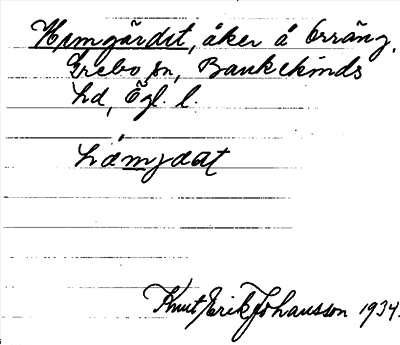 Hemgärdet, åker å Örräng,
Grebo sn, Bankekinds
hd, Ögl. l.
hä̀mjdat
Knut Erik Johansson 1934.